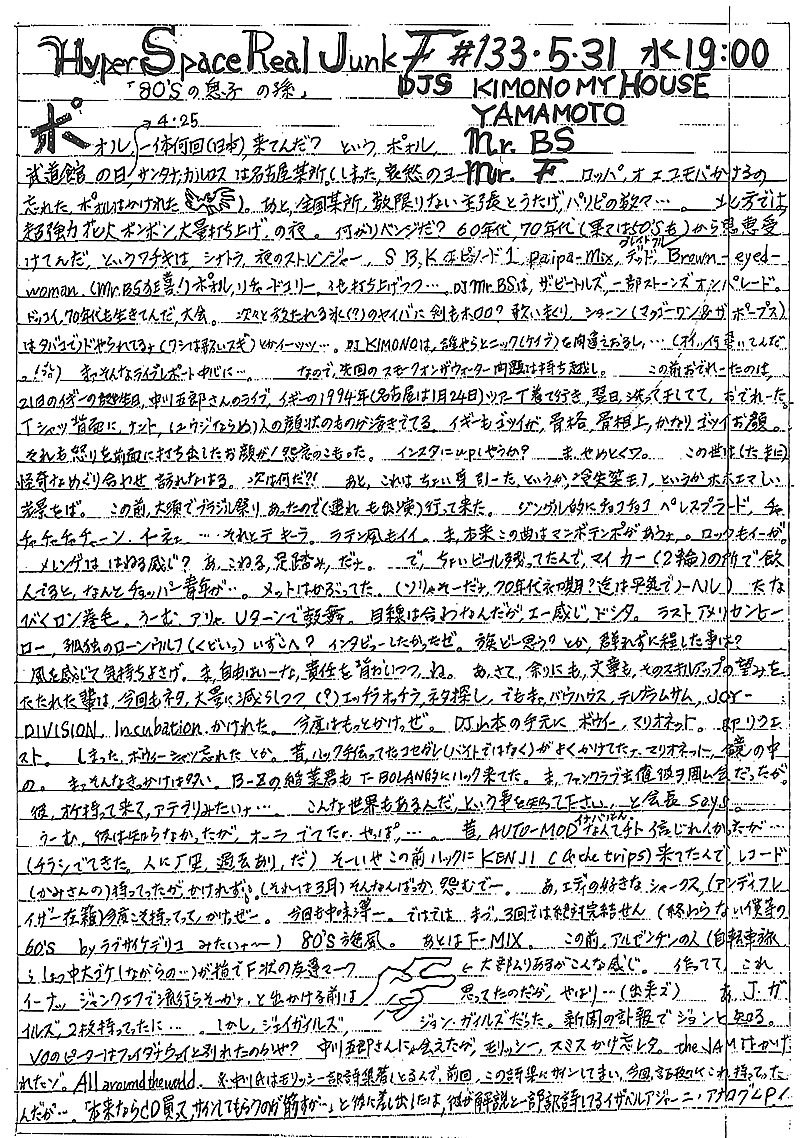 Hyper Space Real Junk F #133・5・31 水 19:00
「80'Sの息子 の孫」 DJS KIMONO MY HOUSE
YAMAMOTO
→4・25
Mr. BS
ポオル 一体何回(日本)、来てんだ? という、ポオル、
Mr. F
武道館 の日、サンタナ、カルロス は名古屋某所。(しまった、哀愁のヨーロッパ、オエコモバかけるの
忘れた、ポオルはかけれた )。あと、全国某所、数限りない主張とうたげ、パリピの数々…。 又化方では
超強力花火 ボンボン、大量打ち上げ、の夜。 何がリベンジだ? 60年代、70年代(果ては50'Sも)から恩恵受
けてんだ、というワケやは シナトラ 夜のストレンジャー、 S B.K エピソード1 paipa-Mix、デッド Brown-eyed-
woman、(Mr.BS が喜ぶ) ポオル、リチャードコリー、も打ち上げつつ…。DJ Mr.BSは、ザビートルズ、一部ストーンズ オンパレード。
ドッコイ、70年代も生きてんだ、大会。 次々と放たれる氷(?)のヤイバに 剣もホロロ? 歌いまくり、ショーン(マクゴーワン&ザ ポーグス)
はタバコで)ドヤられてるナ (ワシは歌いスギ) とかイーッツ…。DJ KIMONOは、誰やらとニック(ケイヴ)を間違えおるし、… (オイ、何書いてんだ
。) まっそんなライブレポート中心に…。 なので、先回のスモークオンザウォーター問題は持ち越し。 この前おどれーたのは、
21日のイギーの誕生日、中川五郎さんのライブ、イギーの1994年(名古屋は1月24日)ツアーT着て行き、翌日、洗って干してて、おどれーた。
Tシャツ背面に、ナント、(ユウジならぬ)人の顔状のものが浮きでてる。イギーもゴツイが、骨格、骨相上、かなりゴツイお顔。
それも怒りを前面に打ち出したお顔が!怨念のこもった。 インスタにupしやうか? ま、やめとくワ。 この世は(たまに)
怪奇なめぐり合わせ 訪れなはる。次は何だ?! あと、これは ちょい身引ーた、というか、
光景をば。 この前、大須でブラジル祭り あったので(連れも出演)行って来た。 ジングル的にチョコチョコ ペレスプラード、チャ
チャチャチャチャーン、イーネェ …それとテキーラ。ラテン風もイイ。ま、本来この曲はマンボテンポがあウナ。ロックもイーが。
メレンゲは はねる感じ? あ、こねる、足踏み、だナ。 で、ちょいビール残ってたんで、マイカー(2輪)の所で飲
んでると、なんとチョッパー青年が…。メットはかぶってた。(ソリャそーだナ、70年代 迄は平気でノーヘル) たな
びくロン巻毛。うーむ、アリャ Uターンで鼓舞。 目線は合わなんだが、エー感じ、ドシタ。 ラストアメリカンヒー
ロー、孤独のローンウルフ(くどいっ)いずこへ? インタビューしたかったぜ。 旅どー思う? とか、群れずに程した事は?
風を感じて気持ちよさげ。ま、自由はいーな、責任を背おいつつ、ね。 あ、さて、余りにも、文章も、そのスキルアップの望みを
たたれた輩は、今回もネタ、大量に減らしつつ (?) エッチラホッチラ、ネタ探し。でもまァ、バウハウス、テレグラムサム、JOY-
DIVISION、Incubation、かけれた。 今度はもっとかけっぜ。 DJ山本の手元に ボウイー、マリオネット。 即リクエ
スト。 しまった、ボウイーシャツ忘れた とか。昔、ハック手伝ってたコセガレ(バイトではなく)がよくかけてたナ、マリオネット、鏡の中
の。まっそんなきっかけは多い。B-Zの稲葉君もT-BOLAN的にハック来てた。ま、ファンクラブ主催 彼ヲ囲ム会だったが。
彼、オケ持って来て、アテブリみたいナ…。 こんな世界もあるんだ、という事を知って下さい、と会長 says。
うーむ、彼は知らなかったが、オーラ でてたナ、やっぱ、…。 昔、AUTO-MOD なんてチト 信じれんかったが…
(チラシでてきた。人に歴史、過去あり、だ) そーいやこの前ハックに KENJI C (&the trips)来てたんで、レコード
(かみさんの)持ってったが、かけれず。(それは3月)そんなんばっか、怨むでー。 あ、エディの好きな シャークス、(アンディフレ
イザー在籍)今度こそ持ってって、かけっぜー。 今回も中味薄ー。ではでは。まず、3回では絶対完結せん (終わらない僕等の
60'S by ラブサイケデリコ みたいナ〜) 80'S旋風。 あとは F-MIX。 この前、アルゼンチンの人(自転車旅
らしっ中大ブケしながらの…)が指でF状の友達マーク ←大部ムリあるがこんな感じ。 作ってて、これ
イーナッ、ジャンクエフで流行らそーかナ、と出かける前は 思ってたのだが、やはり…(出来ズ) あ、J.ガ
イルズ、2枚持ってったに…。しかし、ジェイガイルズ、 ジョン・ガイルズだった。新聞の訃報でジョンと知る。
VOのピーターはフェイダナウェイと別れたのかぜ? 中川五郎さんにャ会えたが、モリッシー、スミスかけ忘レタ。the JAMはかけ
れたゾ。All around the world. &、中川氏はモリッシー詩集著しとるんで、前回、この詩集にサインしてまい、今回、これ持ってった
んだが…。「本来ならCD買ヱ、サインしてもらうのが筋すが…」と彼に差し出したは、彼が解説と一部訳詩してるイザベルアジャーニ・アナログLP、